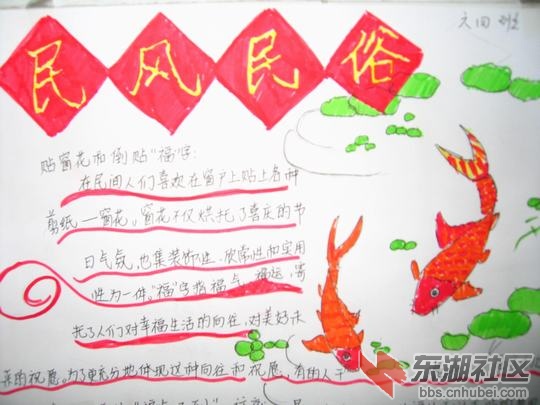 民风民俗
六四班
贴窗花和倒贴"福"字:
在民间人们喜欢在窗户上贴上各种
剪纸—窗花。窗花不仅烘托了喜庆的节
日气氛,也集装饰性、欣赏性和实用
性为一件。"福"字指福气、福运,寄
托了人们对幸福生活的向往,对美好未
来的祝愿。为了更充分地体现这种向往和祝愿,有的人干
东湖社区
bbs.cnhubei.com